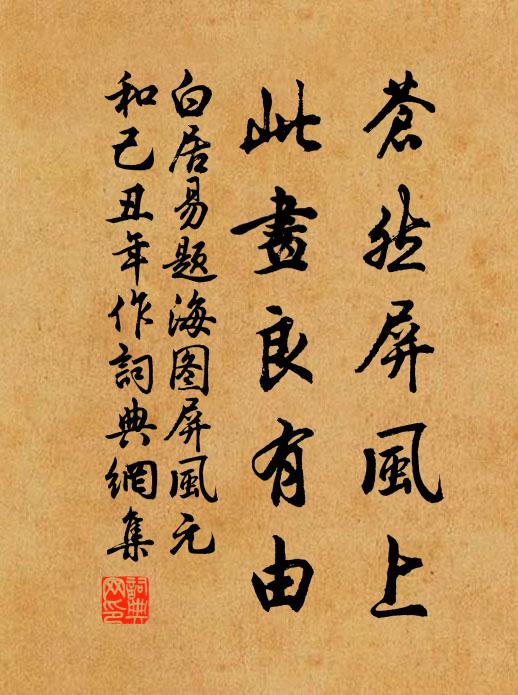 蒼然屏風上
此畫良有由
白居易題海图屏風元
和己丑年作詞典網集
詞典网印